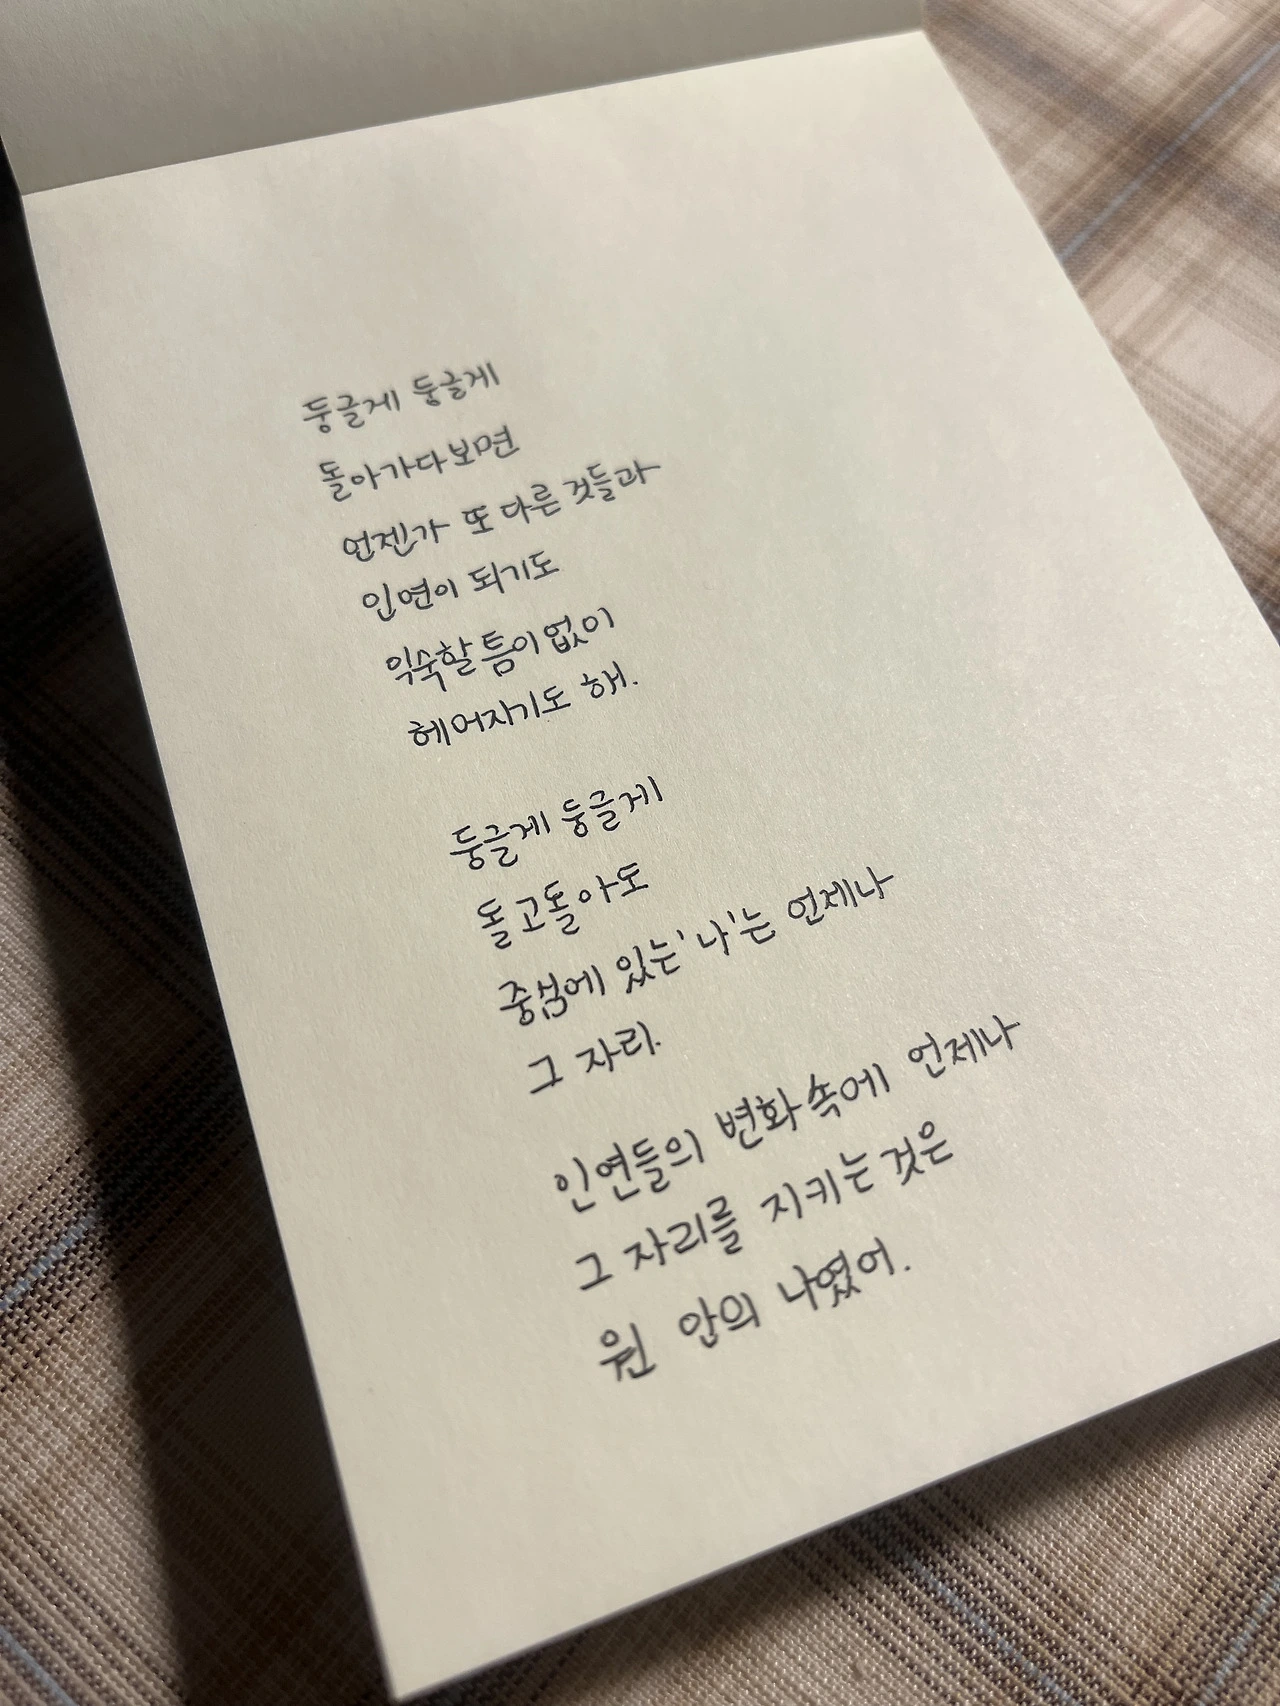 둥글게 둥글게
돌아가다보면
언젠가 또 다른 것들과
인연이 되기도
익숙할 틈이 없이
헤어지기도 해.
둥글게 둥글게
돌고돌아도
중심에 있는 '나'는 언제나
그 자리.
인연들의 변화 속에 언제나
그 자리를 지키는 것은
원 안의 나였어.